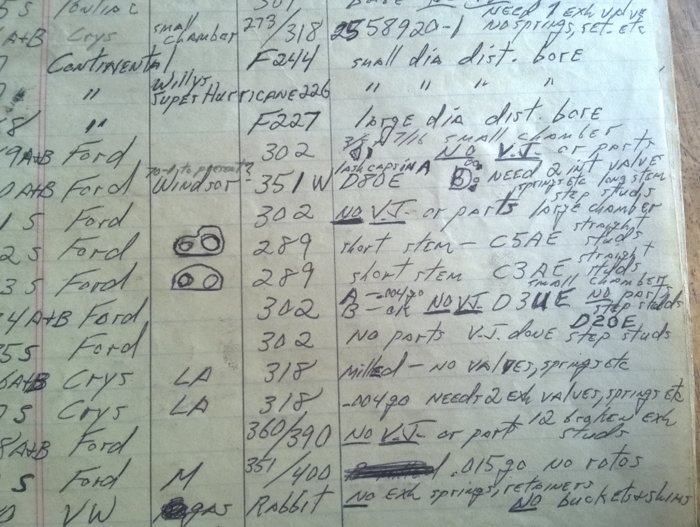 S Pontiac 301
NEED 1 Exh valve
A+B Crys small chamber 273/318 2558920-1 No springs, ret. etc
Continental F244 small dia dist. bore
" Willys Super Hurricane 226 " " " "
" F227 large dia dist. bore
small chamber
9A+B Ford 302 7/16 NO V.J. or parts
0A+B Ford Windsor - 351W D80E A B NEED 2 int valve
springs etc long stem
step studs
1 S Ford 302 NO V.J. or parts large chamber
straight studs
2 S Ford 289 short stem - C5AE
straight studs
3 S Ford 289 short stem C3AE
small chamber
4A+B Ford 302 A -.004go B - ok NO V.J. D3UE No parts
step studs
D20E
35S Ford 302 No parts V.J. done step studs
6A+B Crys LA 318 milled - no valves, springs etc
7 S Crys LA 318 -.004go needs 2 exh valves, springs etc
8A+B Ford 360/390 NO V.J. or parts 12 broken exh studs
S Ford M 351/400 .015go no rotos
VW gas Rabbit NO exh springs, retainers
No buckets + shims